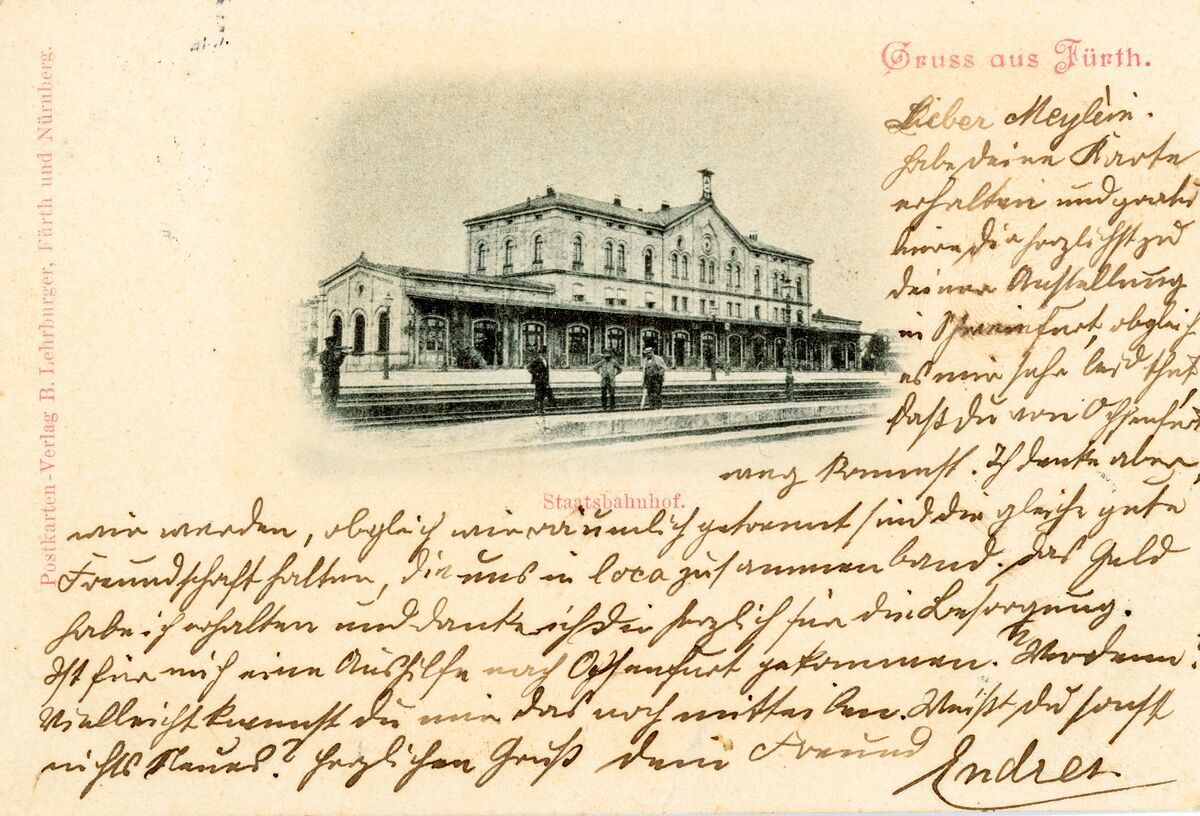 Gruss aus Fürth.
Lieber Meylein.
habe deine Karte
erhalten und gratu
liere dir herzlichst zu
deiner Anstellung
in Schweinfurt, obgleich
es mir sehr leid thut,
daß du von Ochsenfurt
weg kommst. Ich denke aber,
Staatsbahnhof.
wir werden, obgleich wir räumlich getrennt sind die gleiche gute
Freundschaft halten, die uns in loco zusammen band. Das Geld
habe ich erhalten und danke ich dir herzlich für die Besorgung.
Ist für mich eine Aushilfe nach Ochsenfurt gekommen? Wer denn?
Vielleicht kannst du mir das noch mitteilen. Weißt du sonst
nichts Neues? Herzlichen Gruß dein Freund
Endres
Postkarten-Verlag B. Lehrburger, Fürth und Nürnberg.